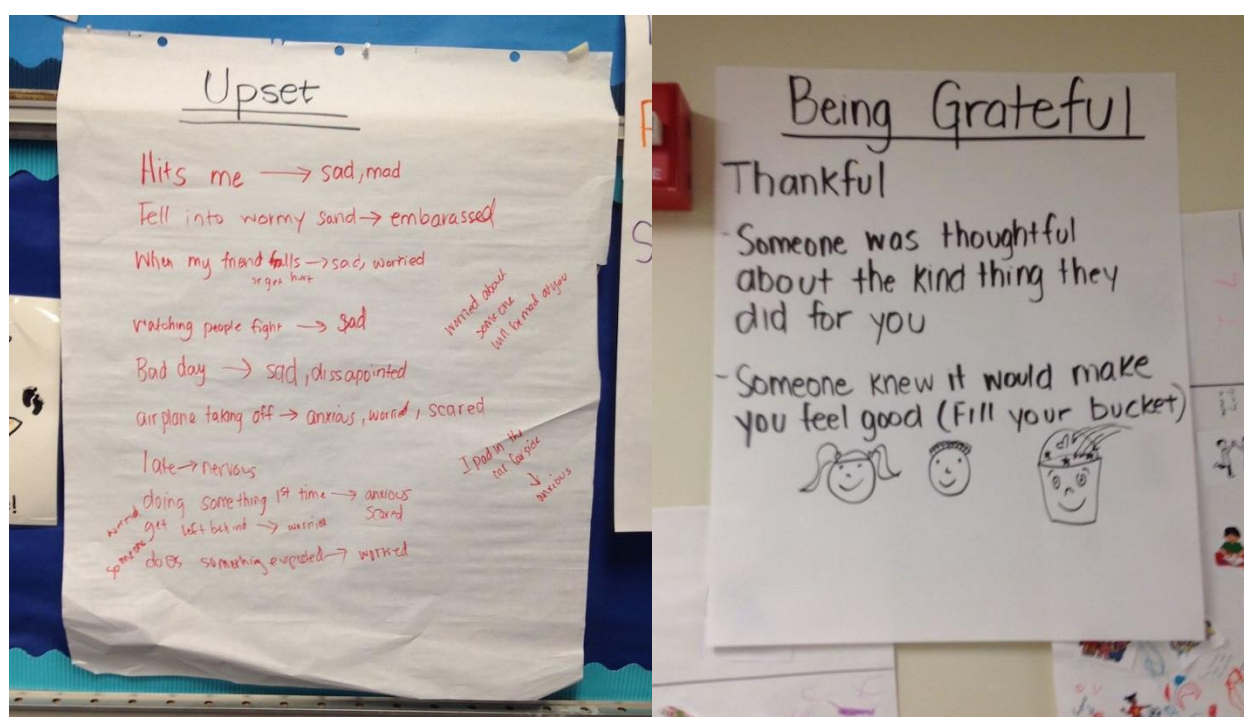 Upset
Hits me → sad, mad
Fell into wormy sand → embarassed
When my friend falls → sad, worried
or get hurt
worried about
someone
will be mad at you
watching people fight → sad
Bad day → sad, dissapointed
airplane taking off → anxious, worried, scared
Ipad in the
car
↓
anxious
late → nervous
doing something 1st time → anxious
scared
worried get left behind → worried
someone does something → worried
Being Grateful
Thankful
- Someone was thoughtful
about the kind thing they
did for you
- Someone knew it would make
you feel good (Fill your bucket)